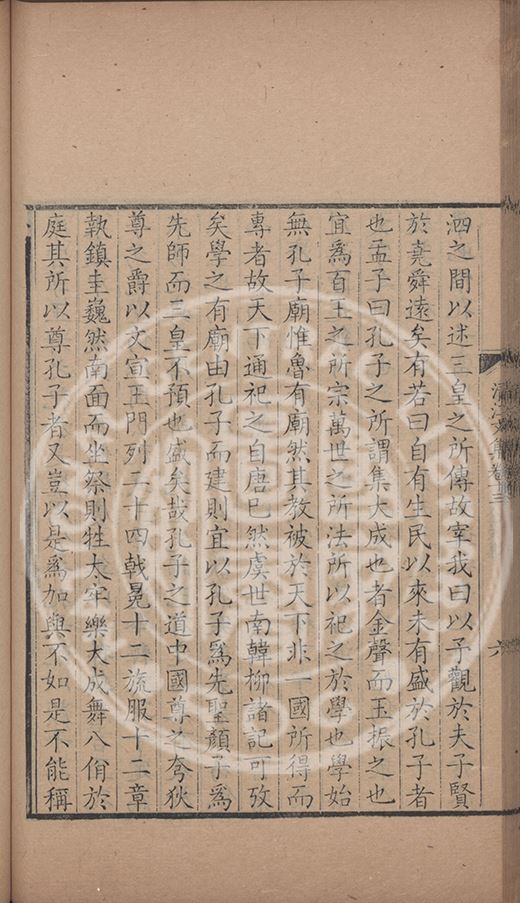 泗之間以述三皇之所傳故宰我曰以予觀於夫子賢
於堯舜遠矣有若曰自有生民以來未有盛於孔子者
也孟子曰孔子之所謂集大成也者金聲而玉振之也
宜爲百王之所宗萬世之所法所以祀之於學也學始
無孔子廟惟魯有廟然其教被於天下非一國所得而
專者故天下通祀之自唐已然虞世南韓柳諸記可攷
矣學之有廟由孔子而建則宜以孔子爲先聖顔子爲
先師而三皇不預也盛矣哉孔子之道中國尊之夸狄
尊之爵以文宣王門列二十四戟冕十二旒服十二章
執鎮圭巍然南面而坐祭則牲太牢樂大成舞八佾於
庭其所以尊孔子者又豈以是爲加與不如是不能稱